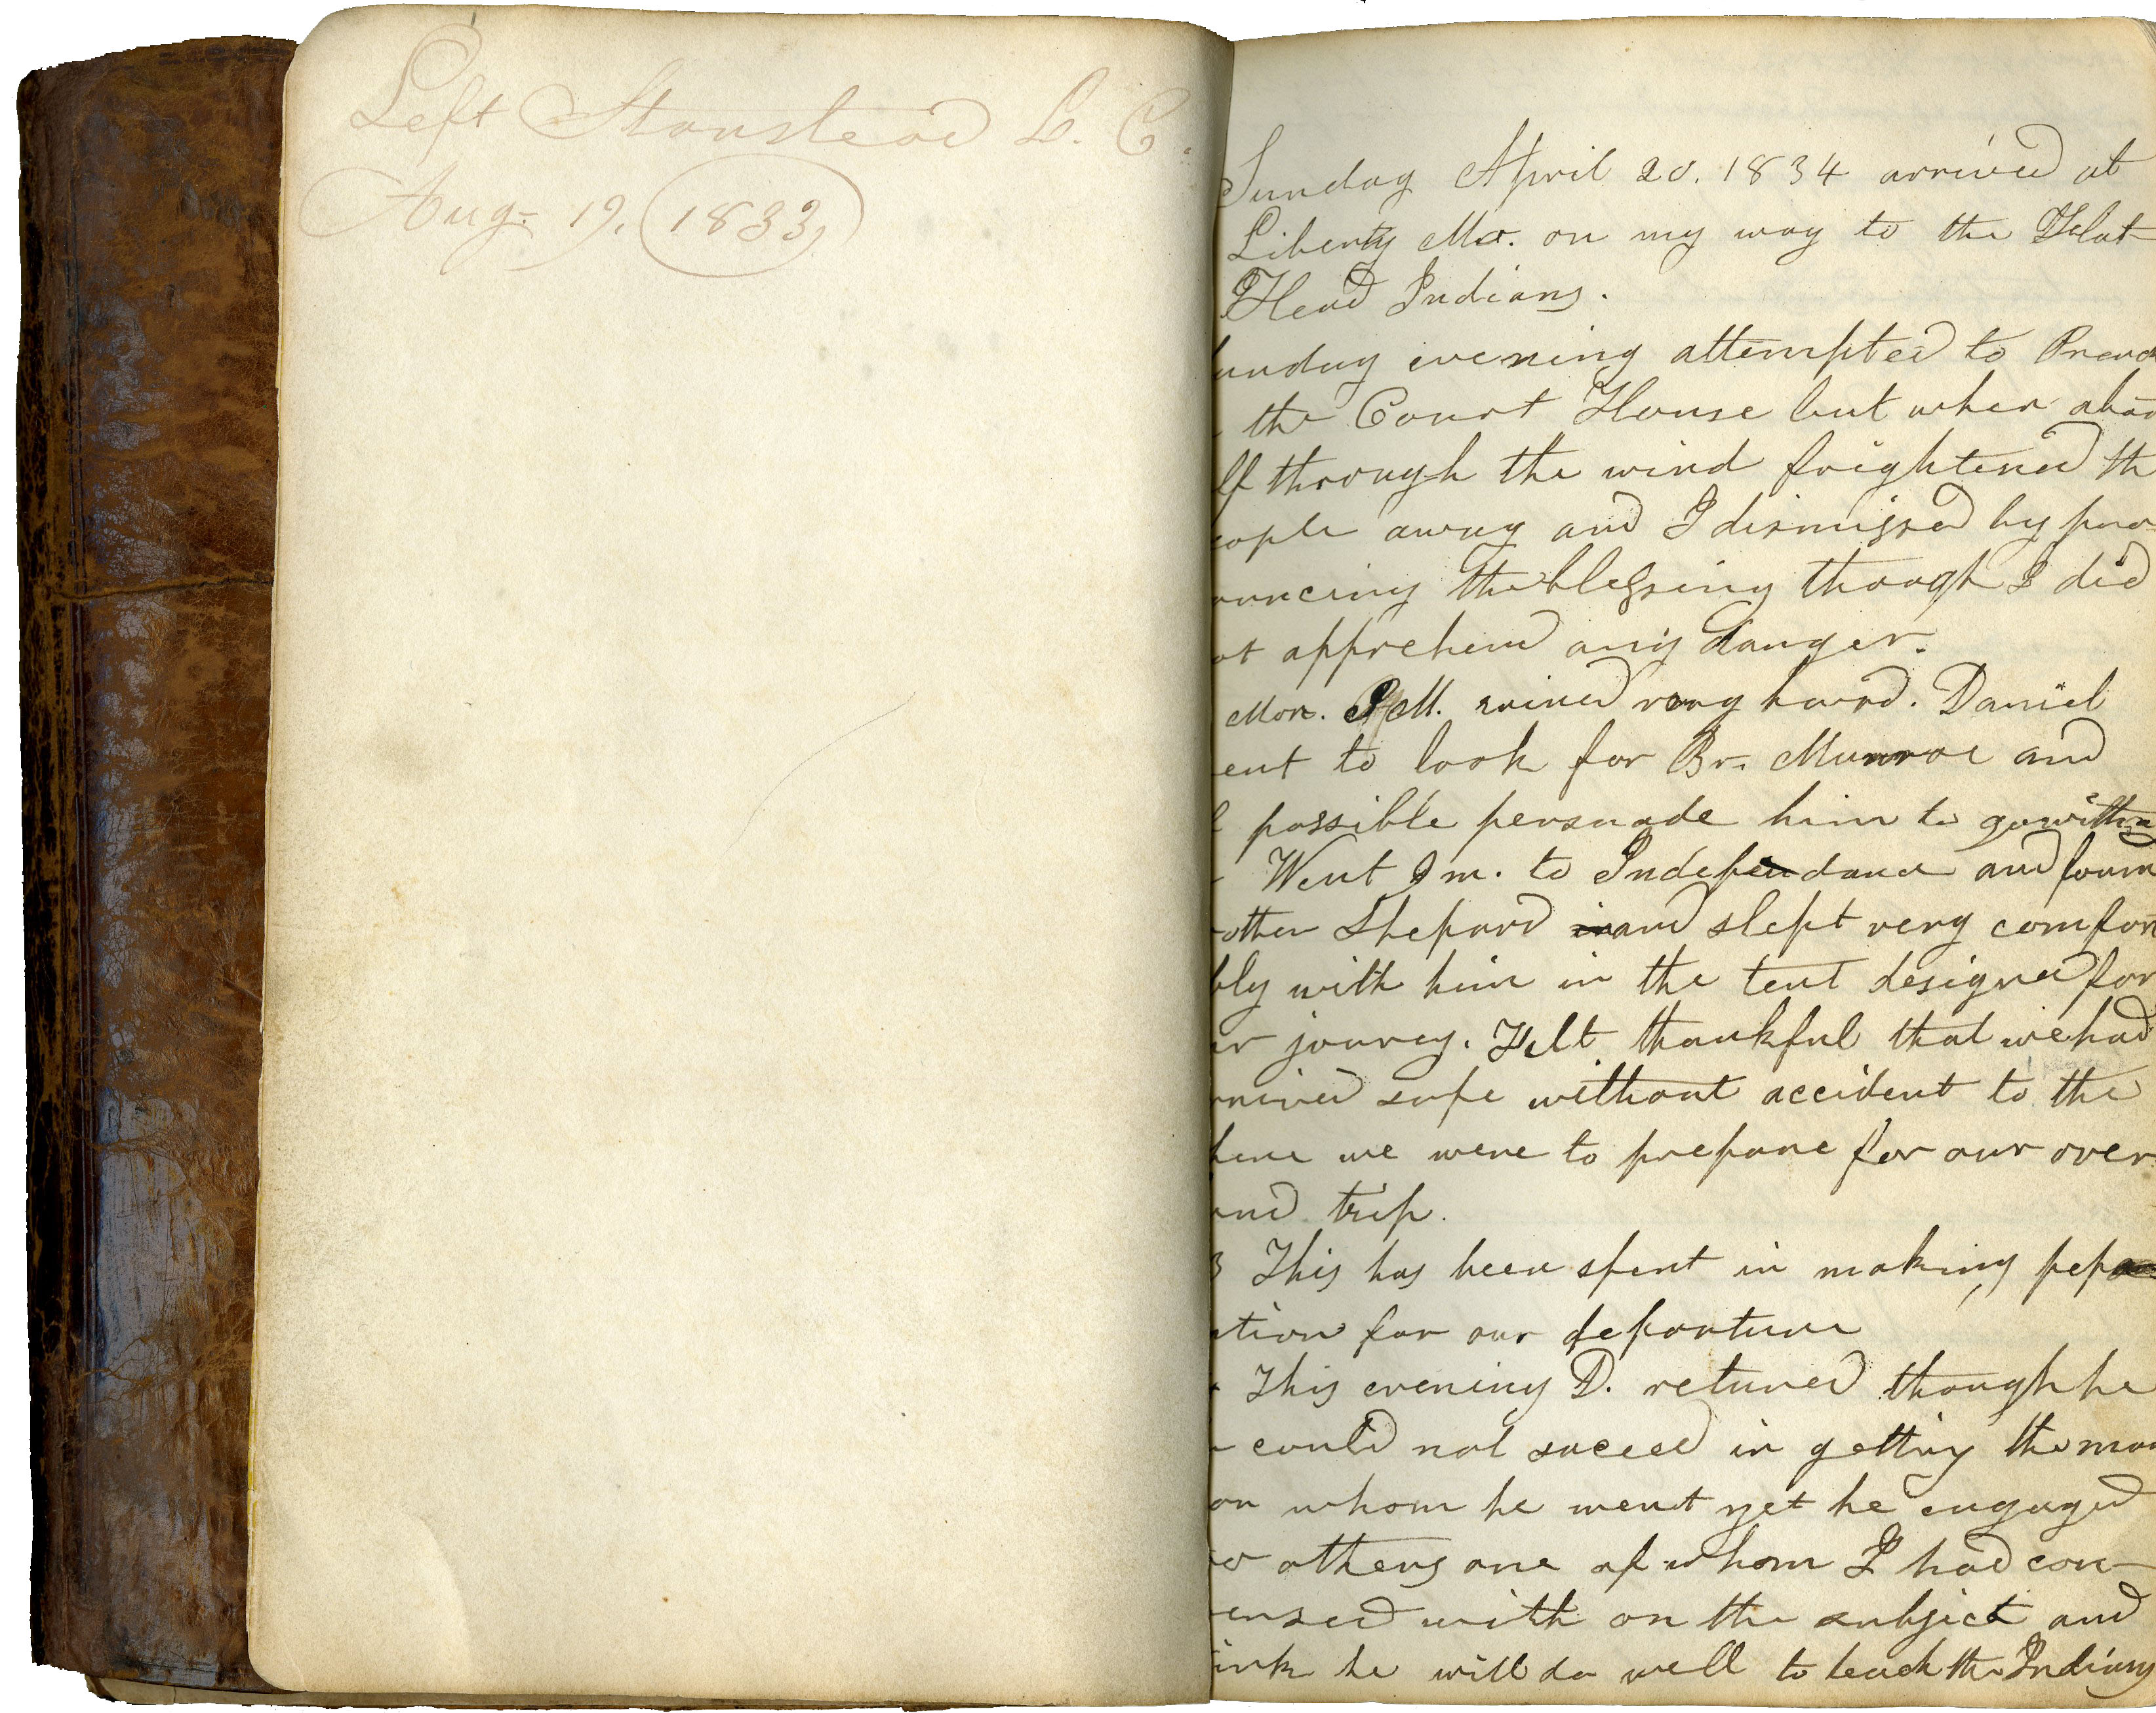 Left Stanstead L. C.
Aug- 19. 1833,
Sunday April 20. 1834 arrived at
Liberty Mo. on my way to the Flat
Head Indians.
unday evening attempted to Preach
the Court House but when abou
lf through the wind frightened th
eople away and I dismissed by pro-
ouncing the blessing though I did
ot apprehend any danger.
Mon. M. rained very hard. Daniel
ent to look for Br. Munroe and
f possible persuade him to go with
Went I m. to Independance and foun
other Shepard and slept very comfor
bly with him in the tent designed for
ur journey. Felt thankful that we had
rrived safe without accident to the
here we were to prepare for our over
and trip.
3 This has been spent in making pepa
ation for our departure
This evening D. retured though he
could not suceed in getting the man
or whom he went yet he engaged
wo others one of whom I had con-
ersed with on the subject and
ink he will do well to teach the Indians